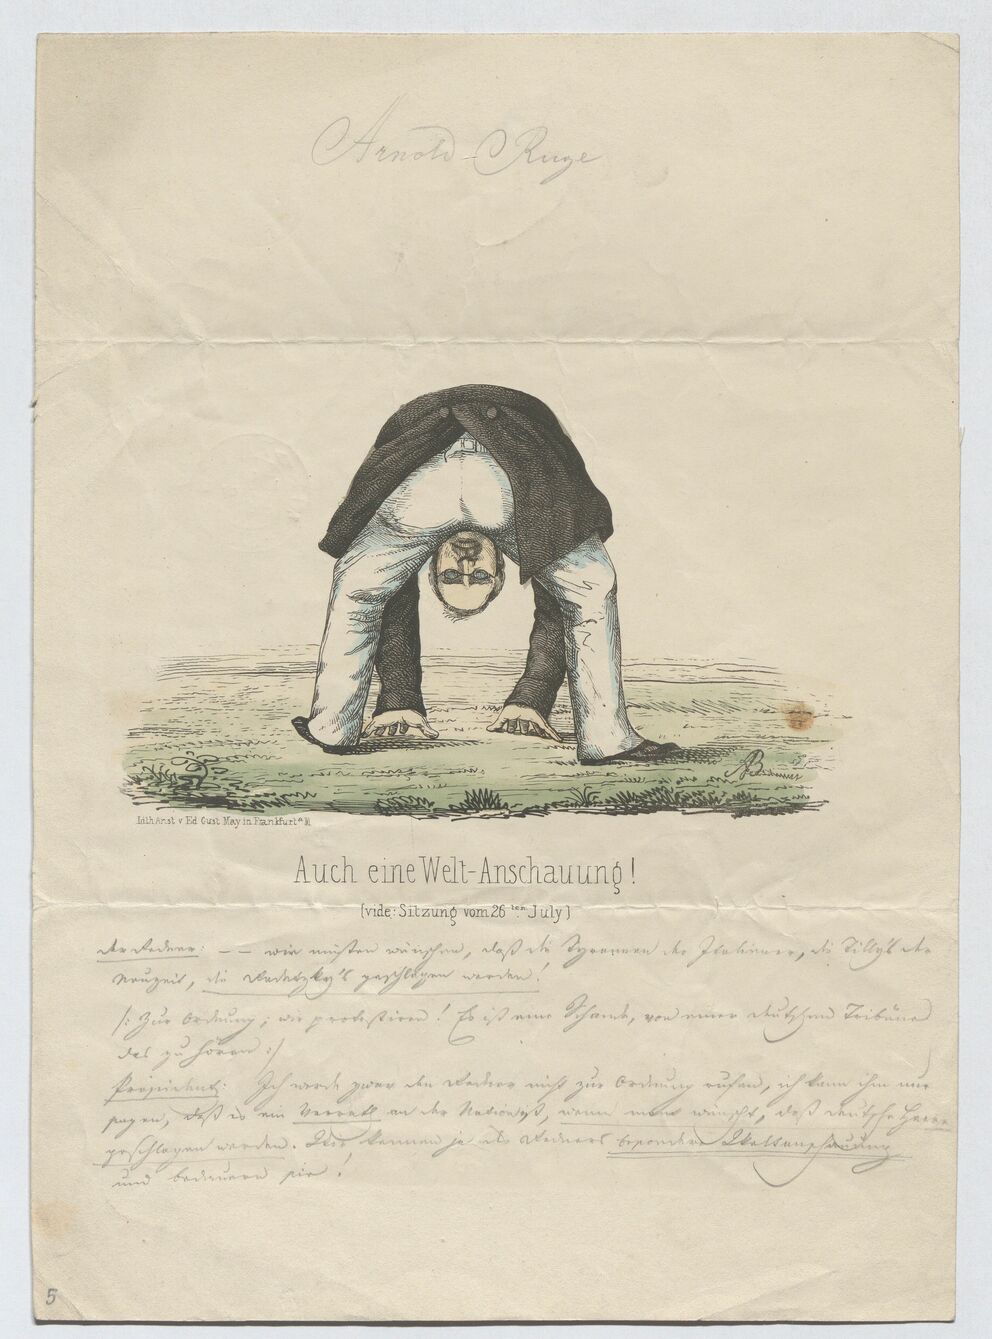 Arnold-Ruge
Lith Anst v Ed Gust May in Frankfurt a M
Auch eine Welt-Anschauung!
(vide: Sitzung vom 26ten July)
der Redner: — — wir müßten wünschen, daß die Tyrannen der Italiener, die Tilly's der
Neuzeit, die Radetzky's geschlagen werden!
/: Zur Ordnung; wir protestiren! Es ist eine Schande, von einer deutschen Tribüne
das zu hören :/
Präsident: Ich werde zwar den Redner nicht zur Ordnung rufen, ich kann ihm nur
sagen, daß es ein Verrath an der Nation ist, wenn man wünscht, daß deutsche Heere
geschlagen werden. Wir kennen ja des Redners besondere Weltanschauung
und bedauern sie!
5